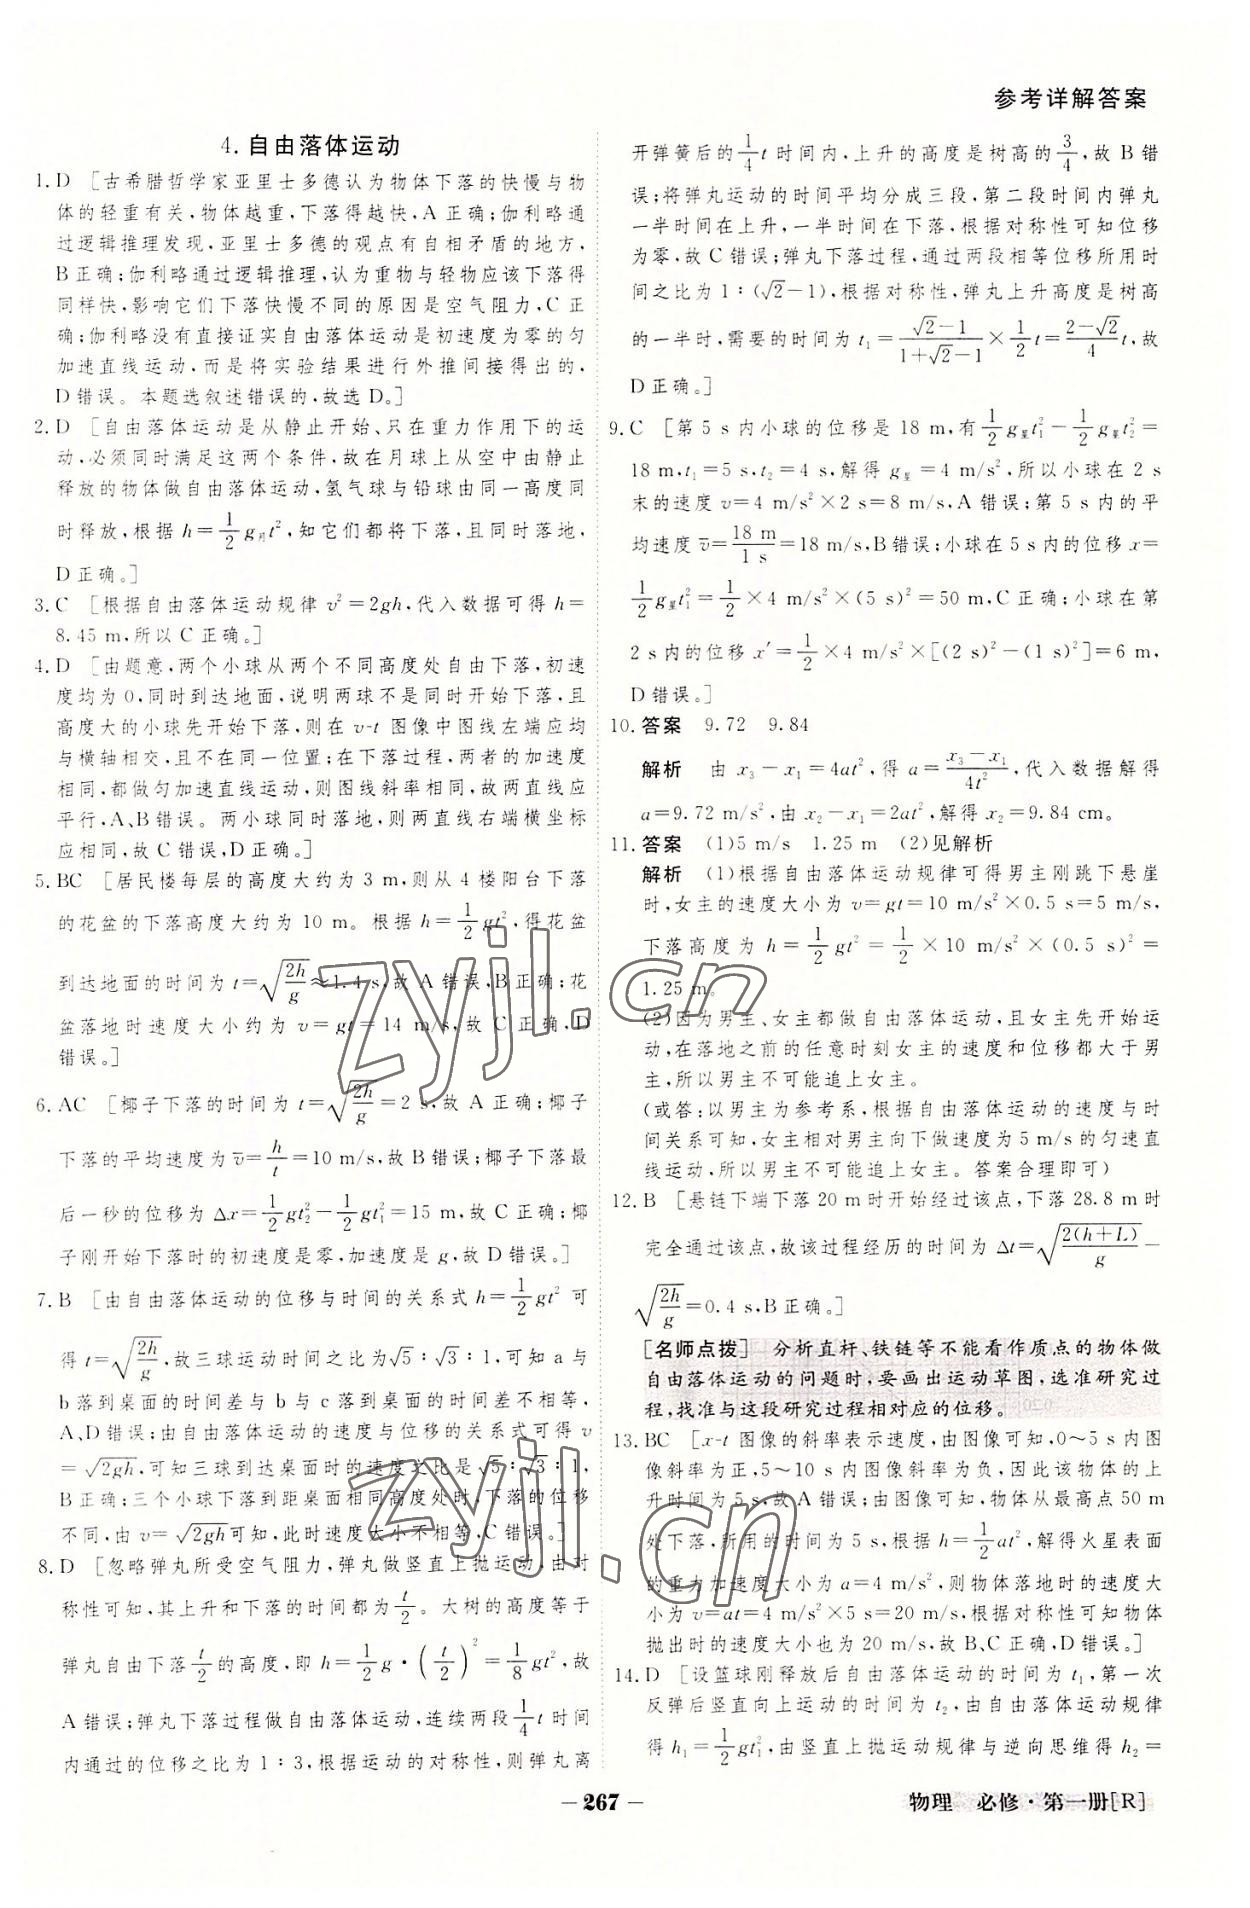 参考详解答案
4. 自由落体运动
1. D [古希腊哲学家亚里士多德认为物体下落的快慢与物
体的轻重有关,物体越重,下落得越快,A 正确;伽利略通
过逻辑推理发现,亚里士多德的观点有自相矛盾的地方,
B 正确;伽利略通过逻辑推理,认为重物与轻物应该下落得
同样快,影响它们下落快慢不同的原因是空气阻力,C 正
确;伽利略没有直接证实自由落体运动是初速度为零的匀
加速直线运动,而是将实验结果进行外推间接得出的,
D 错误。本题选叙述错误的,故选 D。]
2. D [自由落体运动是从静止开始、只在重力作用下的运
动,必须同时满足这两个条件,故在月球上从空中由静止
释放的物体做自由落体运动,氢气球与铅球由同一高度同
时释放,根据 h=1/2 g月t²,知它们都将下落,且同时落地,
D 正确。]
3. C [根据自由落体运动规律 v²=2gh,代入数据可得 h=
8.45 m,所以 C 正确。]
4. D [由题意,两个小球从两个不同高度处自由下落,初速
度均为 0,同时到达地面,说明两球不是同时开始下落,且
高度大的小球先开始下落,则在 v-t 图像中图线左端应均
与横轴相交,且不在同一位置;在下落过程,两者的加速度
相同,都做匀加速直线运动,则图线斜率相同,故两直线应
平行,A、B 错误。两小球同时落地,则两直线右端横坐标
应相同,故 C 错误,D 正确。]
5. BC [居民楼每层的高度大约为 3 m,则从 4 楼阳台下落
的花盆的下落高度大约为 10 m。根据 h=1/2 gt²,得花盆
到达地面的时间为 t=√(2h/g)≈1.4 s,故 A 错误,B 正确;花
盆落地时速度大小约为 v=gt=14 m/s,故 C 正确,D
错误。]
6. AC [椰子下落的时间为 t=√(2h/g)=2 s,故 A 正确;椰子
下落的平均速度为 v̄=h/t=10 m/s,故 B 错误;椰子下落最
后一秒的位移为 Δx=1/2 gt₂²−1/2 gt₁²=15 m,故 C 正确;椰
子刚开始下落时的初速度是零,加速度是 g,故 D 错误。]
7. B [由自由落体运动的位移与时间的关系式 h=1/2 gt² 可
得 t=√(2h/g),故三球运动时间之比为√5∶√3∶1,可知 a 与
b 落到桌面的时间差与 b 与 c 落到桌面的时间差不相等,
A、D 错误;由自由落体运动的速度与位移的关系式可得 v
=√(2gh),可知三球到达桌面时的速度之比是√5∶√3∶1,
B 正确;三个小球下落到距桌面相同高度处时,下落的位移
不同,由 v=√(2gh)可知,此时速度大小不相等,C 错误。]
8. D [忽略弹丸所受空气阻力,弹丸做竖直上抛运动,由对
称性可知,其上升和下落的时间都为 t/2。大树的高度等于
弹丸自由下落 t/2 的高度,即 h=1/2 g·(t/2)²=1/8 gt²,故
A 错误;弹丸下落过程做自由落体运动,连续两段 1/4 t 时间
内通过的位移之比为 1∶3,根据运动的对称性,则弹丸离
开弹簧后的 1/4 t 时间内,上升的高度是树高的 3/4,故 B 错
误;将弹丸运动的时间平均分成三段,第二段时间内弹丸
一半时间在上升,一半时间在下落,根据对称性可知位移
为零,故 C 错误;弹丸下落过程,通过两段相等位移所用时
间之比为 1∶(√2−1),根据对称性,弹丸上升高度是树高
的一半时,需要的时间为 t₁=(√2−1)/(1+√2−1)×1/2 t=(2−√2)/4 t,故
D 正确。]
9. C [第 5 s 内小球的位移是 18 m,有 1/2 g星t₁²−1/2 g星t₂²=
18 m,t₁=5 s,t₂=4 s,解得 g星=4 m/s²,所以小球在 2 s
末的速度 v=4 m/s²×2 s=8 m/s,A 错误;第 5 s 内的平
均速度 v̄=18 m/1 s=18 m/s,B 错误;小球在 5 s 内的位移 x=
1/2 g星t₁²=1/2×4 m/s²×(5 s)²=50 m,C 正确;小球在第
2 s 内的位移 x′=1/2×4 m/s²×[(2 s)²−(1 s)²]=6 m,
D 错误。]
10. 答案 9.72 9.84
解析 由 x₃−x₁=4at²,得 a=(x₃−x₁)/4t²,代入数据解得
a=9.72 m/s²,由 x₂−x₁=2at²,解得 x₂=9.84 cm。
11. 答案 (1)5 m/s 1.25 m (2)见解析
解析 (1)根据自由落体运动规律可得男主刚跳下悬崖
时,女主的速度大小为 v=gt=10 m/s²×0.5 s=5 m/s,
下落高度为 h=1/2 gt²=1/2×10 m/s²×(0.5 s)²=
1.25 m。
(2)因为男主、女主都做自由落体运动,且女主先开始运
动,在落地之前的任意时刻女主的速度和位移都大于男
主,所以男主不可能追上女主。
(或答:以男主为参考系,根据自由落体运动的速度与时
间关系可知,女主相对男主向下做速度为 5 m/s 的匀速直
线运动,所以男主不可能追上女主。答案合理即可)
12. B [悬链下端下落 20 m 时开始经过该点,下落 28.8 m 时
完全通过该点,故该过程经历的时间为 Δt=√(2(h+L)/g)−
√(2h/g)=0.4 s,B 正确。]
[名师点拨] 分析直杆、铁链等不能看作质点的物体做
自由落体运动的问题时,要画出运动草图,选准研究过
程,找准与这段研究过程相对应的位移。
13. BC [x-t 图像的斜率表示速度,由图像可知,0~5 s 内图
像斜率为正,5~10 s 内图像斜率为负,因此该物体的上
升时间为 5 s,故 A 错误;由图像可知,物体从最高点 50 m
处下落,所用的时间为 5 s,根据 h=1/2 at²,解得火星表面
的重力加速度大小为 a=4 m/s²,则物体落地时的速度大
小为 v=at=4 m/s²×5 s=20 m/s,根据对称性可知物体
抛出时的速度大小也为 20 m/s,故 B、C 正确,D 错误。]
14. D [设篮球刚释放后自由落体运动的时间为 t₁,第一次
反弹后竖直向上运动的时间为 t₂,由自由落体运动规律
得 h₁=1/2 gt₁²,由竖直上抛运动规律与逆向思维得 h₂=
— 267 —
物理 必修·第一册[R]
zyjl.cn
zyjl.cn